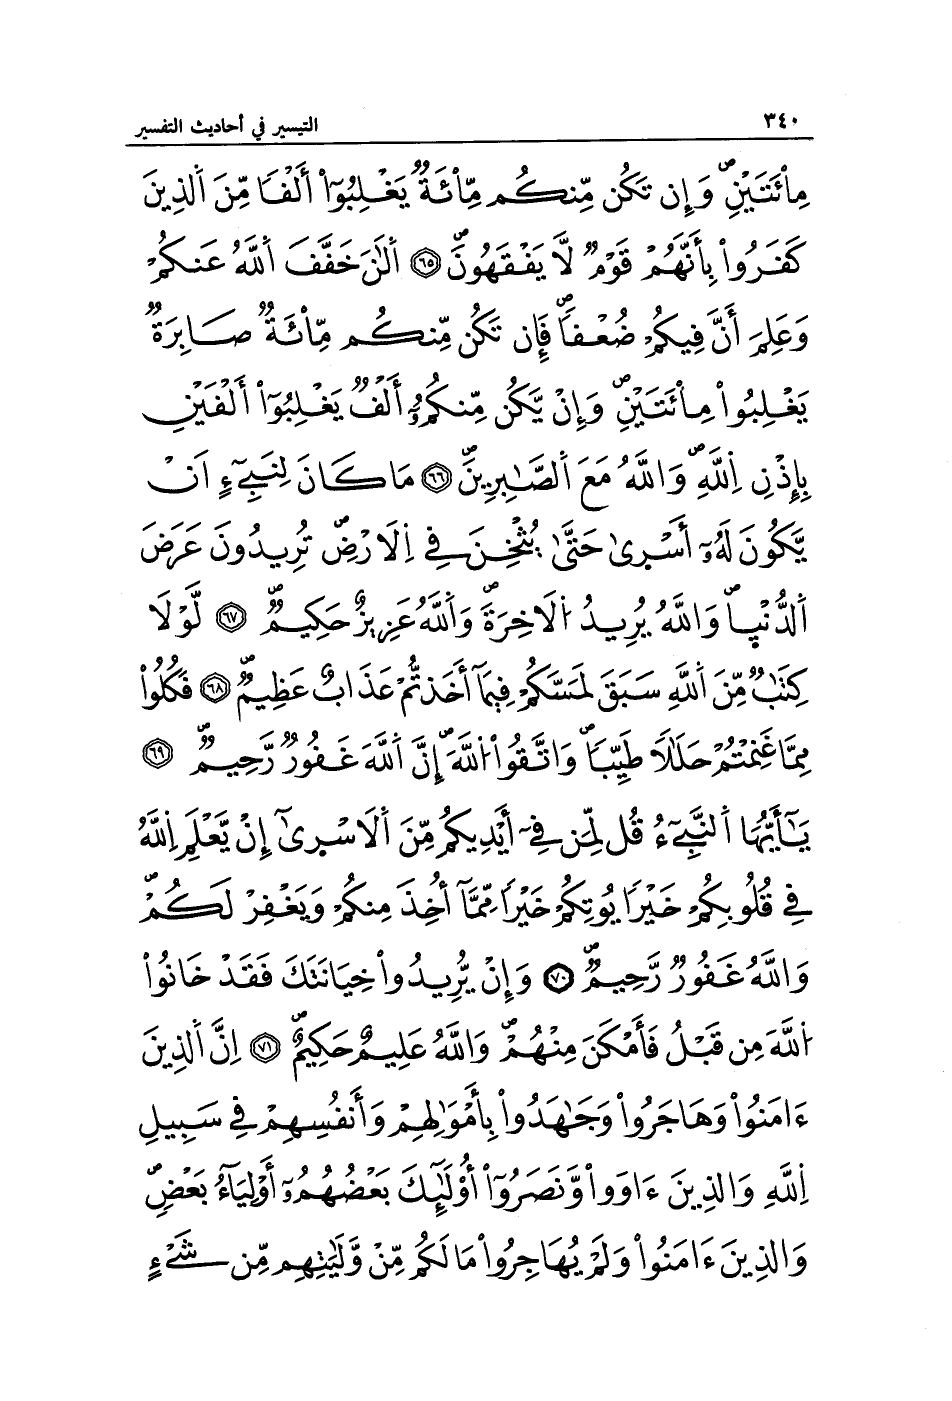 ٣٤٠
التيسير في أحاديث التفسير
مِاْئَتَيْنِۖ وَإِن تَكُن مِّنكُم مِّاْئَةٞ يَغْلِبُوٓاْ أَلْفاٗ مِّنَ اَ۬لذِينَ
كَفَرُواْ بِأَنَّهُمْ قَوْمٞ لَّا يَفْقَهُونَۖ ٦٥ اَ۬لَٰنَ خَفَّفَ اَ۬للَّهُ عَنكُمْ
وَعَلِمَ أَنَّ فِيكُمْ ضُعْفاٗۖ فَإِن تَكُن مِّنكُم مِّاْئَةٞ صَابِرَةٞ
يَغْلِبُواْ مِاْئَتَيْنِۖ وَإِنْ يَّكُن مِّنكُمُۥٓ أَلْفٞ يَغْلِبُوٓاْ أَلْفَيْنِ
بِإِذْنِ اِ۬للَّهِۖ وَاللَّهُ مَعَ اَ۬لصَّٰبِرِينَۖ ٦٦ مَا كَانَ لِنَبِيٓءٍ اَنْ
يَّكُونَ لَهُۥٓ أَسْرىٰ حَتَّىٰ يُثْخِنَ فِے اِ۬لَارْضِۖ تُرِيدُونَ عَرَضَ
اَ۬لدُّنْيۭاۖ وَاللَّهُ يُرِيدُ اُ۬لَاخِرَةَۖ وَاَللَّهُ عَزِيزٌ حَكِيمٞۖ ٦٧ لَّوْلَا
كِتَٰبٞ مِّنَ اَ۬للَّهِ سَبَقَ لَمَسَّكُمْ فِيمَآ أَخَذتُّمْ عَذَابٌ عَظِيمٞۖ ٦٨ فَكُلُواْ
مِمَّا غَنِمْتُمْ حَلَٰلاٗ طَيِّباٗۖ وَاتَّقُواْ اُ۬للَّهَۖ إِنَّ اَ۬للَّهَ غَفُورٞ رَّحِيمٞۖ ٦٩
يَٰٓأَيُّهَا اَ۬لنَّبِيٓءُ قُل لِّمَن فِےٓ أَيْدِيكُم مِّنَ اَ۬لَاسْرىٰٓ إِنْ يَّعْلَمِ اِ۬للَّهُ
فِے قُلُوبِكُمْ خَيْراٗ يُوتِكُمْ خَيْراٗ مِّمَّآ أُخِذَ مِنكُمْ وَيَغْفِرْ لَكُمْۖ
وَاللَّهُ غَفُورٞ رَّحِيمٞۖ ٧٠ وَإِنْ يُّرِيدُواْ خِيَانَتَكَ فَقَدْ خَانُواْ
اُ۬للَّهَ مِن قَبْلُ فَأَمْكَنَ مِنْهُمْۖ وَاللَّهُ عَلِيمٌ حَكِيمٌۖ ٧١ اِنَّ اَ۬لذِينَ
ءَامَنُواْ وَهَاجَرُواْ وَجَٰهَدُواْ بِأَمْوَٰلِهِمْ وَأَنفُسِهِمْ فِے سَبِيلِ
اِ۬للَّهِ وَالذِينَ ءَاوَواْ وَّنَصَرُوٓاْ أُوْلَٰٓئِكَ بَعْضُهُمُۥٓ أَوْلِيَآءُ بَعْضٖۖ
وَالذِينَ ءَامَنُواْ وَلَمْ يُهَاجِرُواْ مَا لَكُم مِّنْ وَّلَٰيَتِهِم مِّن شَےْءٍ